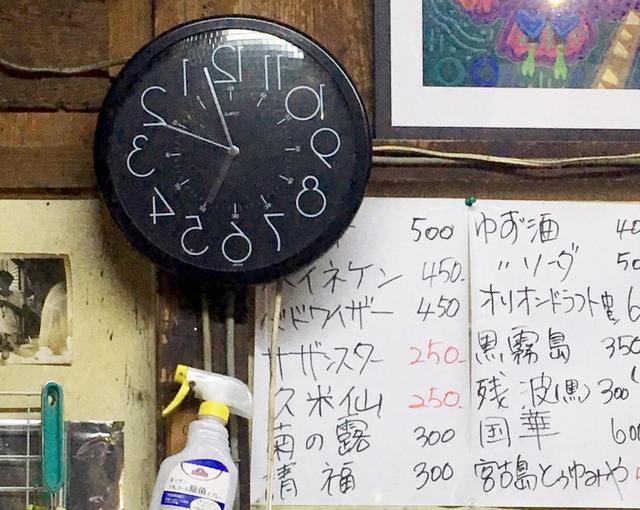 12
11
10
9
8
7
6
5
4
3
2
1
QUARTZ
500
ハイネケン 450.
バドワイザー 450
サザンスター 250.
久米仙 250.
菊の露 300
青福 300
ゆず酒 40
〃 ソーダ 50
オリオンドラフト
黒霧島 350
残波(黒) 300
国華 600
宮古島とうゆみや
キッチン
除菌スプレー